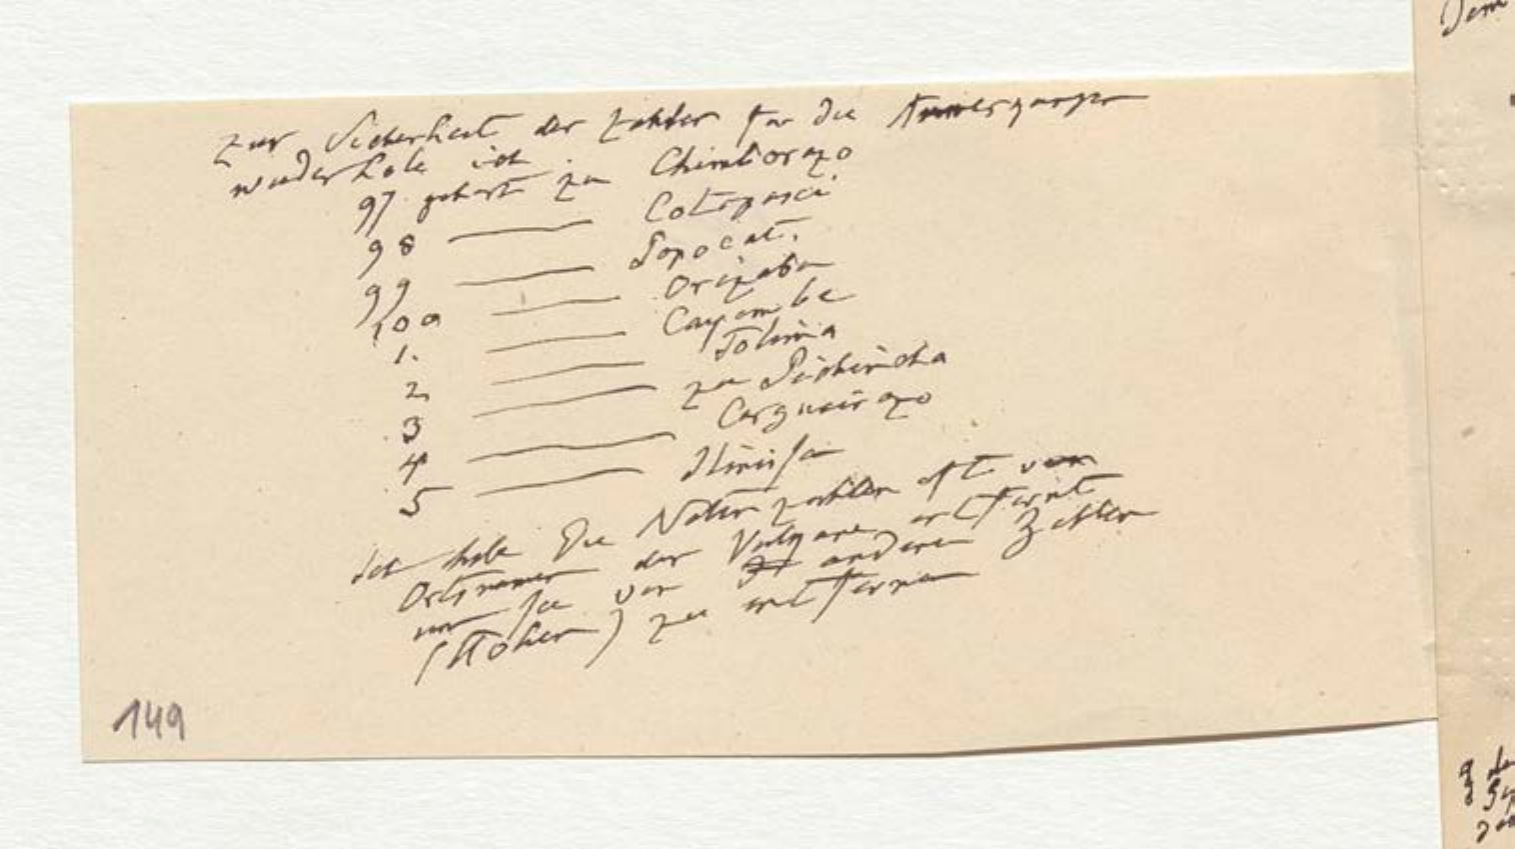 Zur Sicherheit der Zahlen für die Anmerkungen
wiederhole ich
97 gehört zu Chimborazo
98 ——— Cotopaxi
99 ——— Popocat.
100 ——— Orizaba
1. ——— Cayambe
2 ——— Tolima
3 ——— zu Pichincha
4 ——— Carguairazo
5 ——— Ilinissa
Ich habe die Noten zahlen oft vom
Ortsnamen der Vulkane entfernt
um sie von anderen Zahlen
(Höhen) zu entfernen
149
Dem